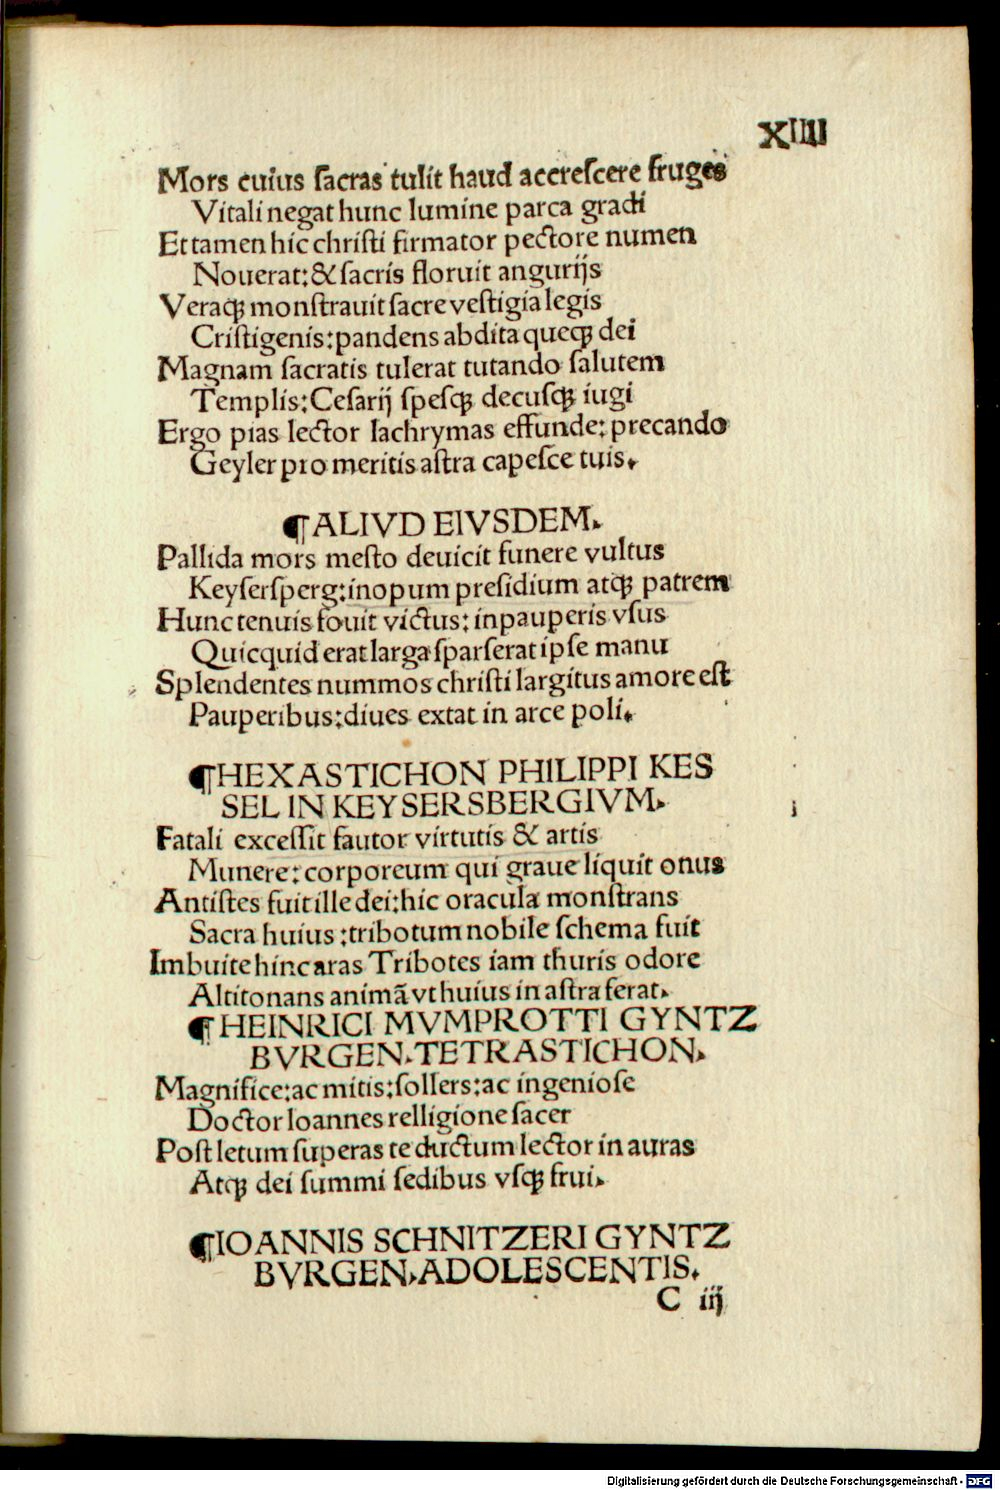 XIIII
Mors cuius sacras tulit haud accrescere fruges
Vitali negat hunc lumine parca gradi
Et tamen hic christi firmator pectore numen
Nouerat: & sacris floruit angurijs
Veraqꝫ monstrauit sacre vestigia legis
Cristigenis: pandens abdita queqꝫ dei
Magnam sacratis tulerat tutando salutem
Templis: Cesarij spesqꝫ decusqꝫ iugi
Ergo pias lector lachrymas effunde: precando
Geyler pro meritis astra capesce tuis.
¶ALIVD EIVSDEM.
Pallida mors mesto deuicit funere vultus
Keysersperg: inopum presidium atqꝫ patrem
Hunc tenuis fouit victus: inpauperis vsus
Quicquid erat larga sparserat ipse manu
Splendentes nummos christi largitus amore est
Pauperibus: diues extat in arce poli.
¶HEXASTICHON PHILIPPI KES
SEL IN KEYSERSBERGIVM.
Fatali excessit fautor virtutis & artis
Munere: corporeum qui graue liquit onus
Antistes fuit ille dei: hic oracula monstrans
Sacra huius: tribotum nobile schema fuit
Imbuite hinc aras Tribotes iam thuris odore
Altitonans animã vt huius in astra ferat.
¶HEINRICI MVMPROTTI GYNTZ
BVRGEN. TETRASTICHON.
Magnifice: ac mitis: sollers: ac ingeniose
Doctor Ioannes relligione sacer
Post letum superas te ductum lector in auras
Atqꝫ dei summi sedibus vsqꝫ frui.
¶IOANNIS SCHNITZERI GYNTZ
BVRGEN. ADOLESCENTIS.
C iij
Digitalisierung gefördert durch die Deutsche Forschungsgemeinschaft - DFG